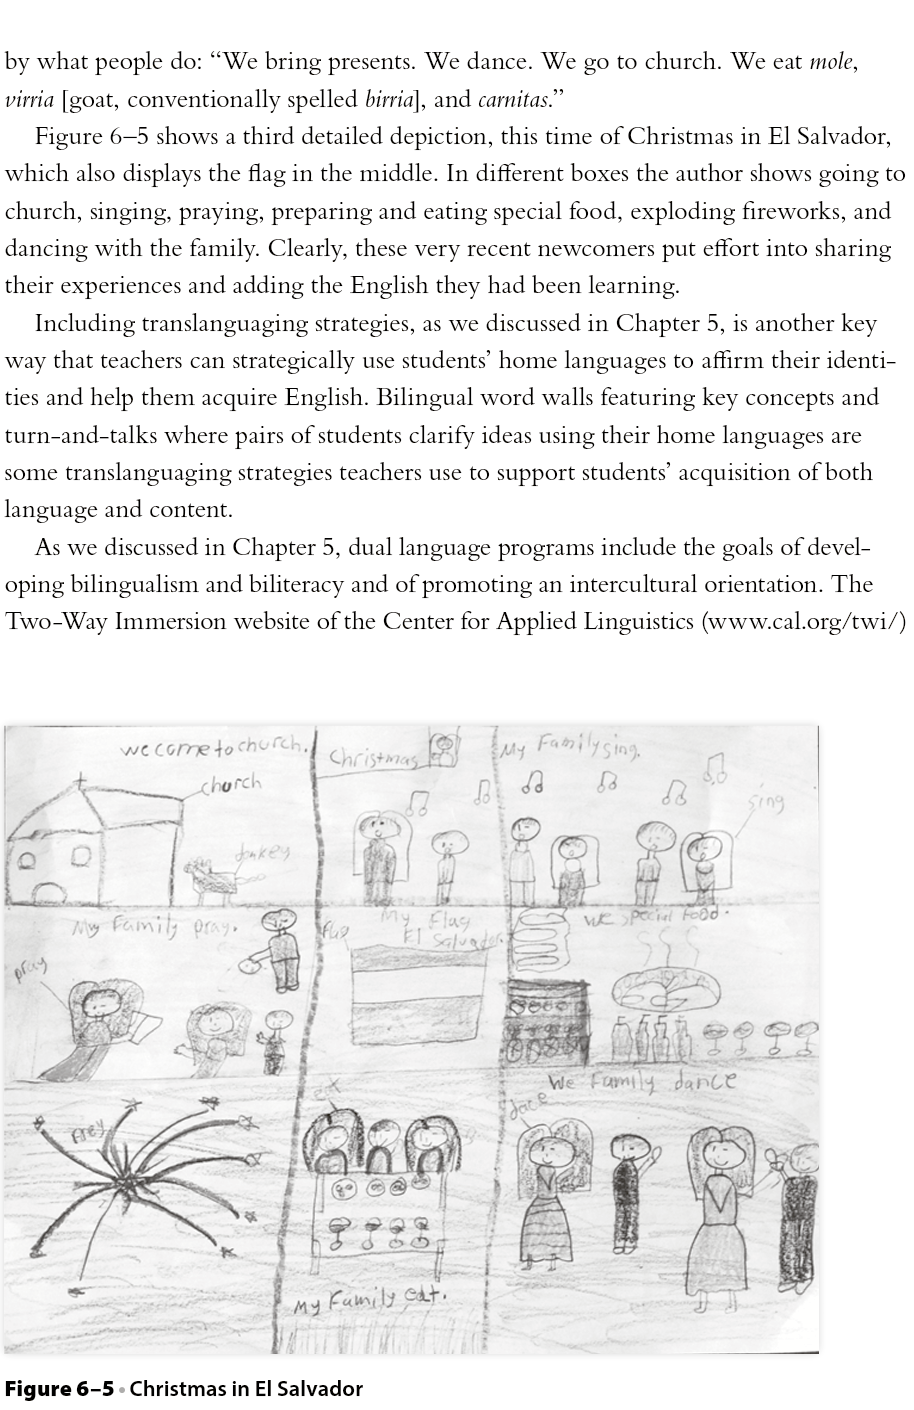 by what people do: “We bring presents. We dance. We go to church. We eat mole,
virria [goat, conventionally spelled birria], and carnitas.”
Figure 6–5 shows a third detailed depiction, this time of Christmas in El Salvador,
which also displays the flag in the middle. In different boxes the author shows going to
church, singing, praying, preparing and eating special food, exploding fireworks, and
dancing with the family. Clearly, these very recent newcomers put effort into sharing
their experiences and adding the English they had been learning.
Including translanguaging strategies, as we discussed in Chapter 5, is another key
way that teachers can strategically use students’ home languages to affirm their identi-
ties and help them acquire English. Bilingual word walls featuring key concepts and
turn-and-talks where pairs of students clarify ideas using their home languages are
some translanguaging strategies teachers use to support students’ acquisition of both
language and content.
As we discussed in Chapter 5, dual language programs include the goals of devel-
oping bilingualism and biliteracy and of promoting an intercultural orientation. The
Two-Way Immersion website of the Center for Applied Linguistics (www.cal.org/twi/)
we come to church.
church
donkey
Christmas
My Family sing.
sing
My Family pray.
pray
flag
My Flag
El Salvador
we special food.
eat
My Family eat.
We Family dance
dace
Figure 6–5 • Christmas in El Salvador